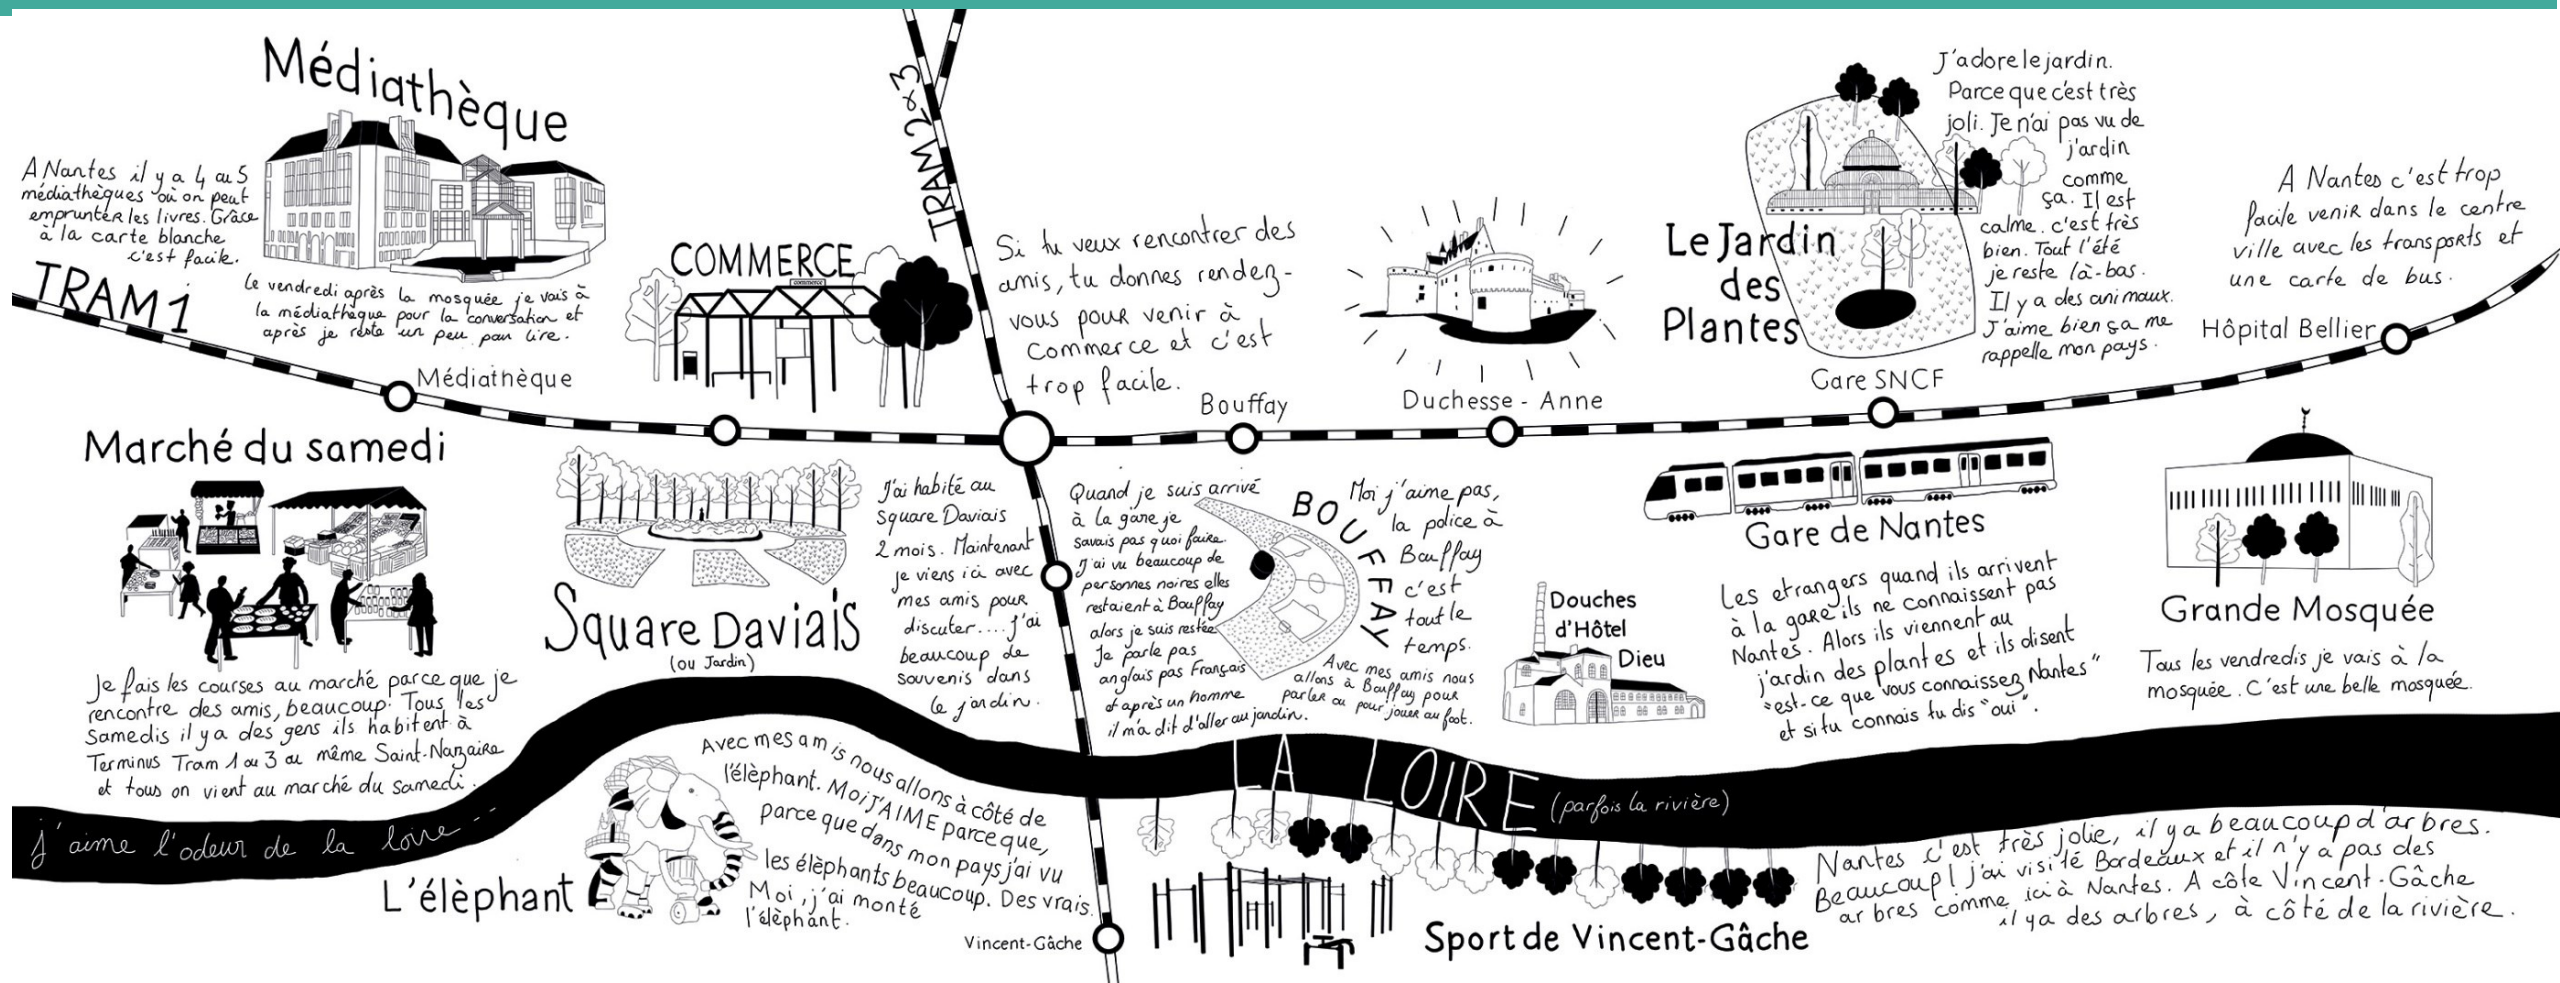 Médiathèque
A Nantes il y a 4 ou 5
médiathèques où on peut
emprunter les livres. Grâce
à la carte blanche
c'est facile.
Le vendredi après la mosquée je vais à
la médiathèque pour la conversation et
après je reste un peu pour lire.
TRAM 1
Médiathèque
TRAM 2&3
COMMERCE
commerce
Si tu veux rencontrer des
amis, tu donnes rendez-
vous pour venir à
Commerce et c'est
trop facile.
Bouffay
Duchesse - Anne
Le Jardin
des
Plantes
J'adore le jardin.
Parce que c'est très
joli. Je n'ai pas vu de
j'ardin
comme
ça. Il est
calme. c'est très
bien. Tout l'été
je reste là-bas.
Il y a des animaux.
J'aime bien ça me
rappelle mon pays.
Gare SNCF
A Nantes c'est trop
facile venir dans le centre
ville avec les transports et
une carte de bus.
Hôpital Bellier
Marché du samedi
Je fais les courses au marché parce que je
rencontre des amis, beaucoup. Tous les
Samedis il y a des gens ils habitent à
Terminus Tram 1 ou 3 ou même Saint-Nazaire
et tous on vient au marché du samedi.
Square Daviais
(ou Jardin)
J'ai habité au
Square Daviais
2 mois. Maintenant
je viens ici avec
mes amis pour
discuter.... j'ai
beaucoup de
souvenis dans
le jardin.
Quand je suis arrivé
à la gare je
savais pas quoi faire.
J'ai vu beaucoup de
personnes noires elles
restaient à Bouffay
alors je suis restée
Je parle pas
anglais pas Français
et après un homme
il m'a dit d'aller au jardin.
BOUFFAY
Moi j'aime pas,
la police à
Bouffay
c'est
tout le
temps.
Avec mes amis nous
allons à Bouffay pour
parler ou pour jouer au foot.
Douches
d'Hôtel
Dieu
Gare de Nantes
Les etrangers quand ils arrivent
à la gare ils ne connaissent pas
Nantes. Alors ils viennent au
j'ardin des plantes et ils disent
"est-ce que vous connaissez Nantes"
et si tu connais tu dis "oui".
Grande Mosquée
Tous les vendredis je vais à la
mosquée. C'est une belle mosquée.
LA LOIRE (parfois la rivière)
j'aime l'odeur de la loire --
L'élèphant
Avec mes amis nous allons à côté de
l'élèphant. Moi J'AIME parce que,
parce que dans mon pays j'ai vu
les élèphants beaucoup. Des vrais.
Moi, j'ai monté
l'élèphant.
Vincent-Gâche
Sport de Vincent-Gâche
Nantes c'est très jolie, il y a beaucoup d'arbres.
Beaucoup! j'ai visité Bordeaux et il n'y a pas des
arbres comme ici à Nantes. A côte Vincent-Gâche
il ya des arbres, à côté de la rivière.